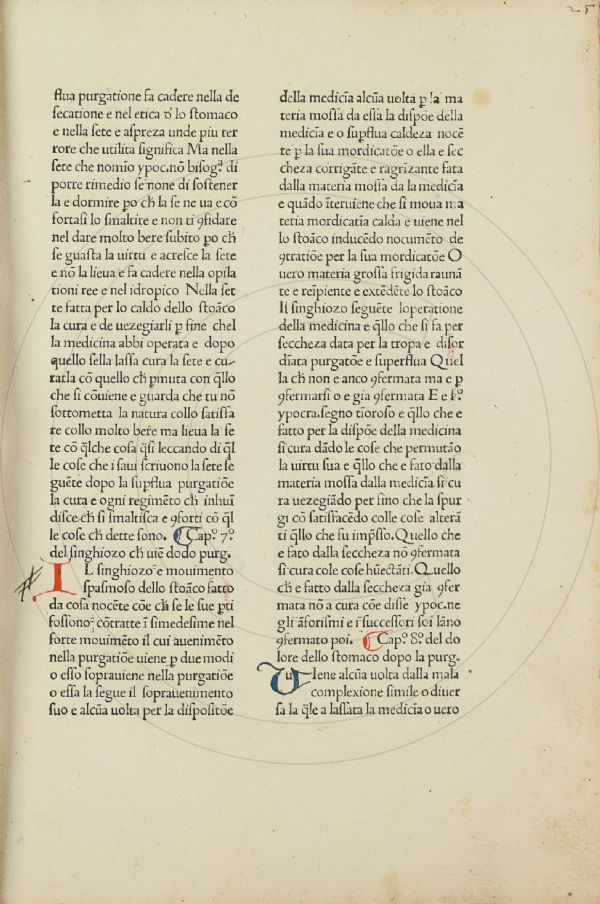 25
flua purgatione fa cadere nella de
fecatione e nel etica o' lo stomaco
e nella sete e aspreza unde piu ter
rore che utilita significa Ma nella
sete che nomīo ypoc.nō bisogᵃ di
porre rimedio se none di sostener
la e dormire po ch la se ne ua e cō
fortasi lo smaltire e non ti ꝯfidare
nel dare molto bere subito po ch
se guasta la uirtu e acresce la sete
e nō la lieua e fa cadere nella opila
tioni ree e nel idropico Nella set
te fatta per lo caldo dello stoāco
la cura e de uezegiarli p fine chel
la medicina abbi operata e dopo
quello sella lassa cura la sete e cu-
rarla cō quello ch pmuta con qllo
che si cōuiene e guarda che tu nō
sottometta la natura collo satisfa
re collo molto bere ma lieua la se
te cō qlche cosa qsi leccando di ql
le cose che i saui scriuono la sete se
guēte dopo la supflua purgatiōe
la cura e ogni regimēto ch inhui
disce.ch si smaltisca e ꝯforti cō ql
le cose ch dette sono. Cap.º 7.º
del singhiozo ch uiē dodo purg.
IL singhiozo e mouimento
spasmoso dello stoāco fatto
da cosa nocēte cōe ch se le sue pti
fossono cōtratte ī simedesime nel
forte mouimēto il cui auenimēto
nella purgatiōe uiene p due modi
o esso soprauiene nella purgatiōe
o essa la segue il soprauenimento
suo e alcūa uolta per la dispositōe
della medicīa alcūa uolta p la ma
teria mossa da essa la dispōe della
medicīa e o supflua caldeza nocē
te p la sua mordicatōe o ella e sec
cheza corrigāte e ragrizante fata
dalla materia mossa da la medicīa
e quādo īteruiene che si moua ma
teria mordicatīa calda e uiene nel
lo stoāco inducēdo nocumēto de
ꝯtratiōe per la sua mordicatōe O
uero materia grossa frigida raunā
te e reīpiente e extēdēte lo stoāco
Il singhiozo seguēte loperatione
della medicina e qllo che si fa per
seccheza data per la tropa e disor
dīata purgatōe e superflua Quel
la ch non e anco ꝯfermata ma e p
ꝯfermarsi o e gia ꝯfermata E e sº.
ypocra.segno tīoroso e qllo che e
fatto per la dispōe della medicina
si cura dādo le cose che permutāo
la uirtu sua e qllo che e fato dalla
materia mossa dalla medicīa si cu
ra uezegiādo per sino che la spur
gi cō satisfacēdo colle cose alterā
ti qllo che su impsso. Quello che
e fato dalla seccheza nō ꝯfermata
si cura cole cose hūectāti. Quello
ch e fatto dalla seccheza gia ꝯfer
mata nō a cura cōe disse ypoc.ne
gli aforismi e i successori soi lāno
ꝯfermato poi. Cap.º 8.º del do
lore dello stomaco dopo la purg.
UIene alcūa uolta dalla mala
complexione simile o diuer
sa la qle a lassata la medicīa o uero